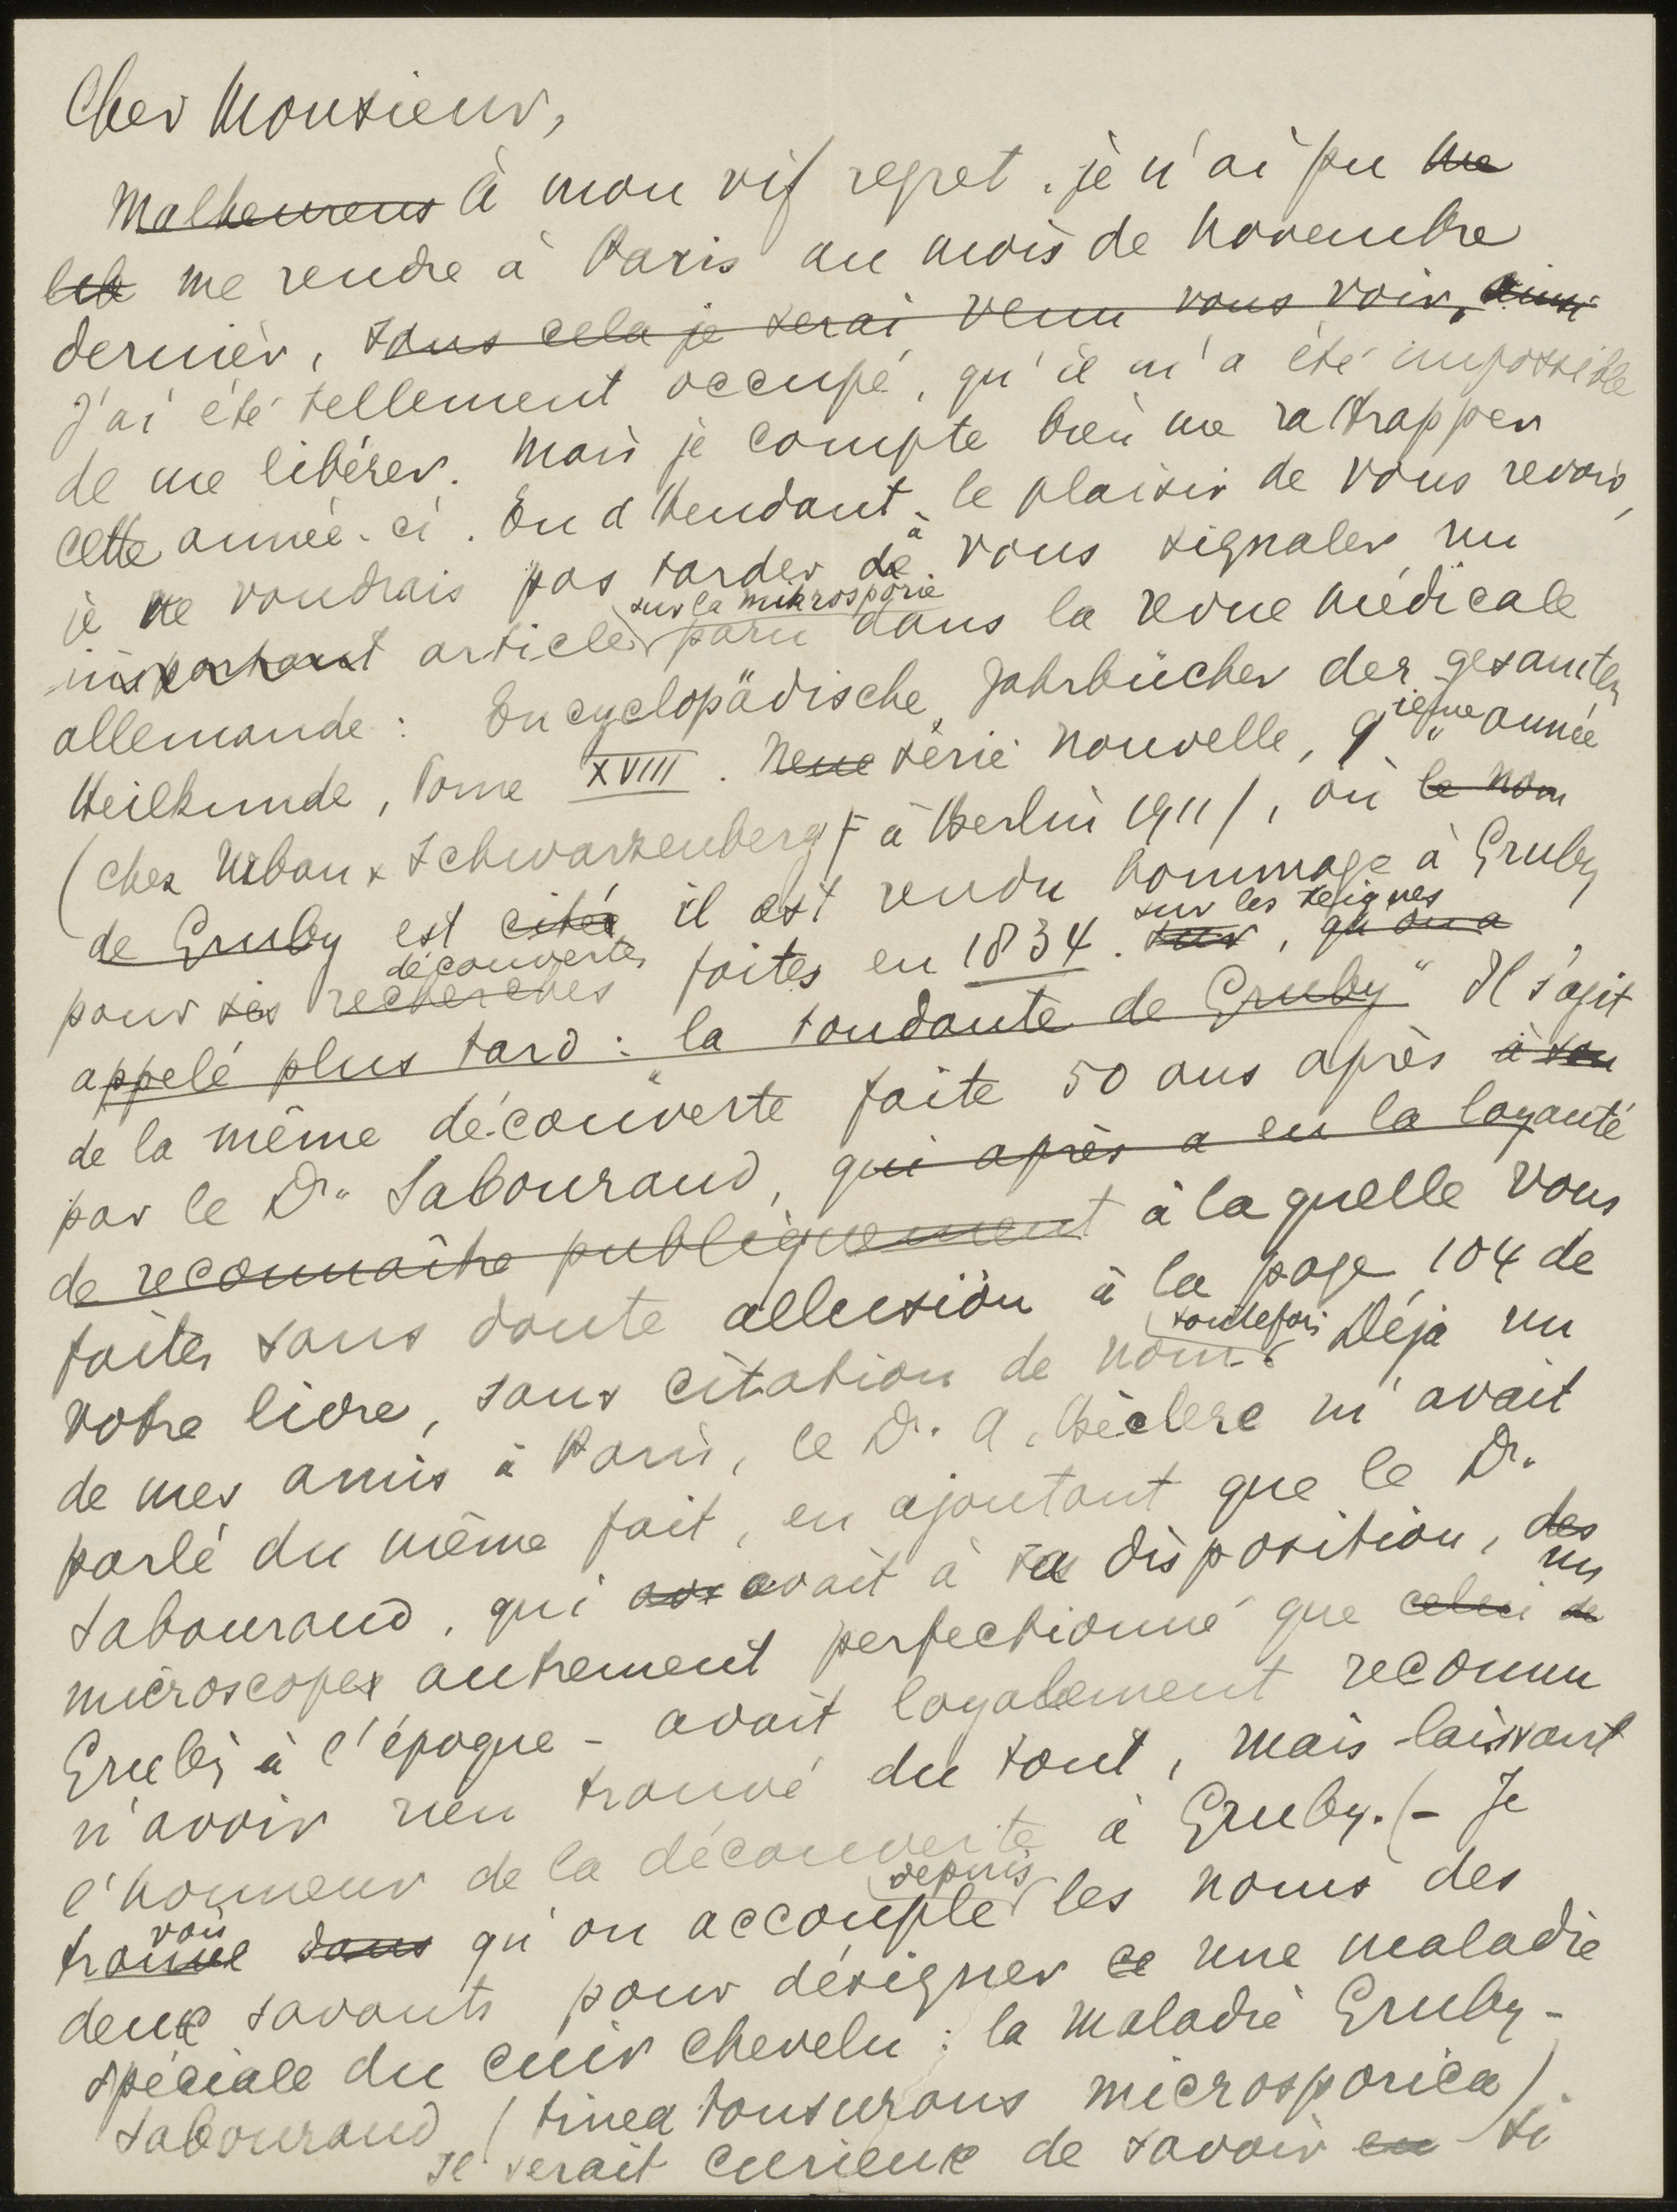 Cher Monsieur,
Malheureus à mon vif regret, je n'ai pu me
me rendre à Paris au mois de Novembre
dernier, sans cela je serai venu vous voir, ainsi
J'ai été tellement occupé, qu'il m'a été impossible
de me libérer. Mais je compte bien me rattrapper
cette année-ci. En attendant, le plaisir de vous revoir,
à
je ne voudrais pas tarder de vous signaler un
sur la mikrosporie
important article paru dans la revue médicale
allemande : Encyclopädische Jahrbücher der gesamten
Heilkunde, Tome XVIII. Neue série nouvelle, 9ième année
(chez Urban & Schwarzenberg à Berlin 1911), où le nom
de Gruby est citée il est rendu hommage à Gruby
découvertes sur les teignes
pour ses recherches faites en 1834. sur, qu'on a
appelé plus tard : "la tondante de Gruby" Il s'agit
de la même découverte faite 50 ans après à son
par le Dr. Sabouraud, qui après a eu la loyauté
de reconnaître publiquement à laquelle vous
faites sans doute allusion à la page 104 de
votre livre, sans citation de nom. toutefois Déjà un
de mes amis à Paris, le Dr. A. Béclere m'avait
parlé du même fait, en ajoutant que le Dr.
Sabouraud, qui avait à sa disposition, des
un
microscopes autrement perfectionné que celui de
Gruby à l'époque - avait loyalement reconnu
n'avoir rien trouvé du tout, mais laissant
l'honneur de la découverte à Gruby. (- Je
vois depuis
trouve dans qu'on accouple les noms des
deux savants pour désigner ce une maladie
spéciale du cuir chevelu : la maladie Gruby-
Sabouraud (tinea tonsurans microsporica).
Je serait curieux de savoir en si